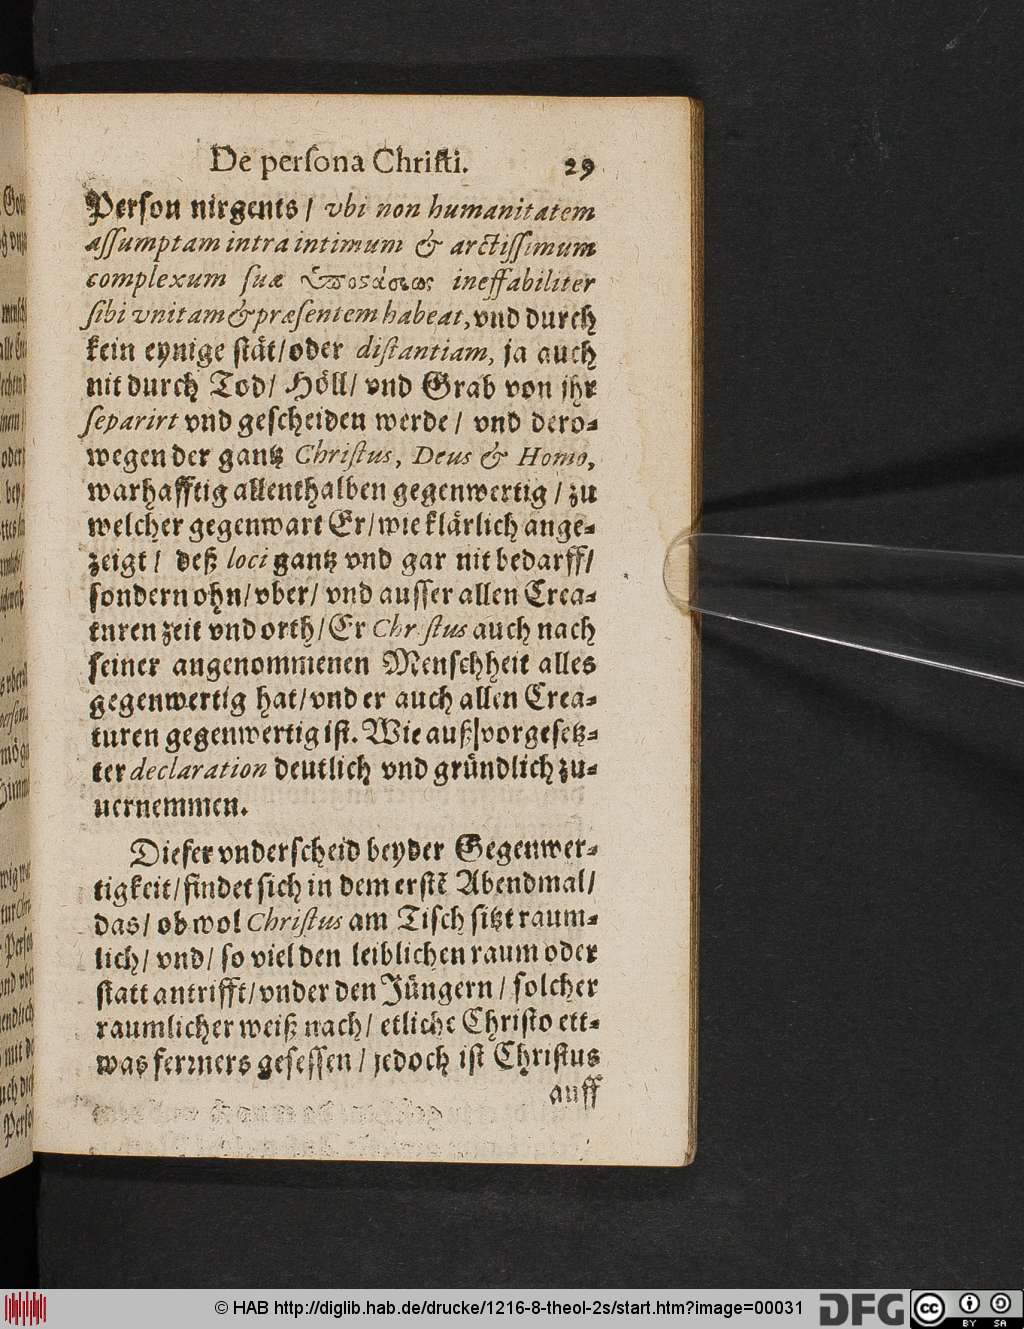 De perſona Chriſti. 29
Perſon nirgents / vbi non humanitatem
aſſumptam intra intimum & arctiſſimum
complexum ſuæ ὑποϛάσεως ineffabiliter
ſibi vnitam & præſentem habeat, vnd durch
kein eynige ſtät / oder diſtantiam, ja auch
nit durch Tod / Höll / vnd Grab von ihr
ſeparirt vnd geſcheiden werde / vnd dero-
wegen der gantz Chriſtus, Deus & Homo,
warhafftig allenthalben gegenwertig / zu
welcher gegenwart Er / wie klärlich ange-
zeigt / deß loci gantz vnd gar nit bedarff /
ſondern ohn / vber / vnd auſſer allen Crea-
turen zeit vnd orth / Er Chriſtus auch nach
ſeiner angenommenen Menſchheit alles
gegenwertig hat / vnd er auch allen Crea-
turen gegenwertig iſt. Wie auß vorgeſetz-
ter declaration deutlich vnd gründlich zu-
uernemmen.
Dieſer vnderſcheid beyder Gegenwer-
tigkeit / findet ſich in dem erſtē Abendmal /
das / ob wol Chriſtus am Tiſch ſitzt raum-
lich / vnd / ſo viel den leiblichen raum oder
ſtatt antrifft / vnder den Jüngern / ſolcher
raumlicher weiß nach / etliche Chriſto ett-
was ferrners geſeſſen / jedoch iſt Chriſtus
auff
© HAB http://diglib.hab.de/drucke/1216-8-theol-2s/start.htm?image=00031
DFG
cc
BY SA